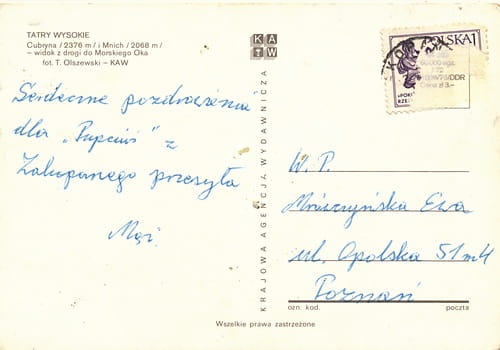 TATRY WYSOKIE
Cubryna / 2376 m / i Mnich / 2068 m /
– widok z drogi do Morskiego Oka
fot. T. Olszewski – KAW
K A
T W
POLSKA 1
60.000 egz.
Cena zł 3.–
Serdeczne pozdrowienia
dla „Pupciuś" z
Zakopanego przesyła
Mąż.
KRAJOWA AGENCJA WYDAWNICZA
W. P.
Mruczyńska Ewa
ul. Opolska 51 m 4
Poznań
ozn. kod. poczta
Wszelkie prawa zastrzeżone